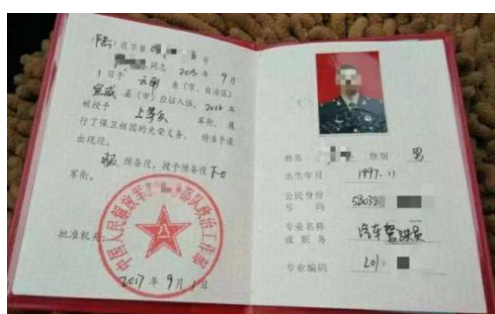 (陆)退字第
号
同志 2015 年 9 月
1 日于 云南 省(市、自治区)
宣威 县(市)应征入伍,2016 年
被授予 上等兵 军衔,履
行了保卫祖国的光荣义务,特准予退
出现役。
服 预备役,授予预备役 下士
军衔。
批准机关
中国人民解放军 部队政治工作部
八一
2017 年 9 月 1 日
姓名
性别 男
出生年月 1997.11
公民身份
号 码 53038
专业名称
或 职 务 汽车驾驶员
专业编码 L01